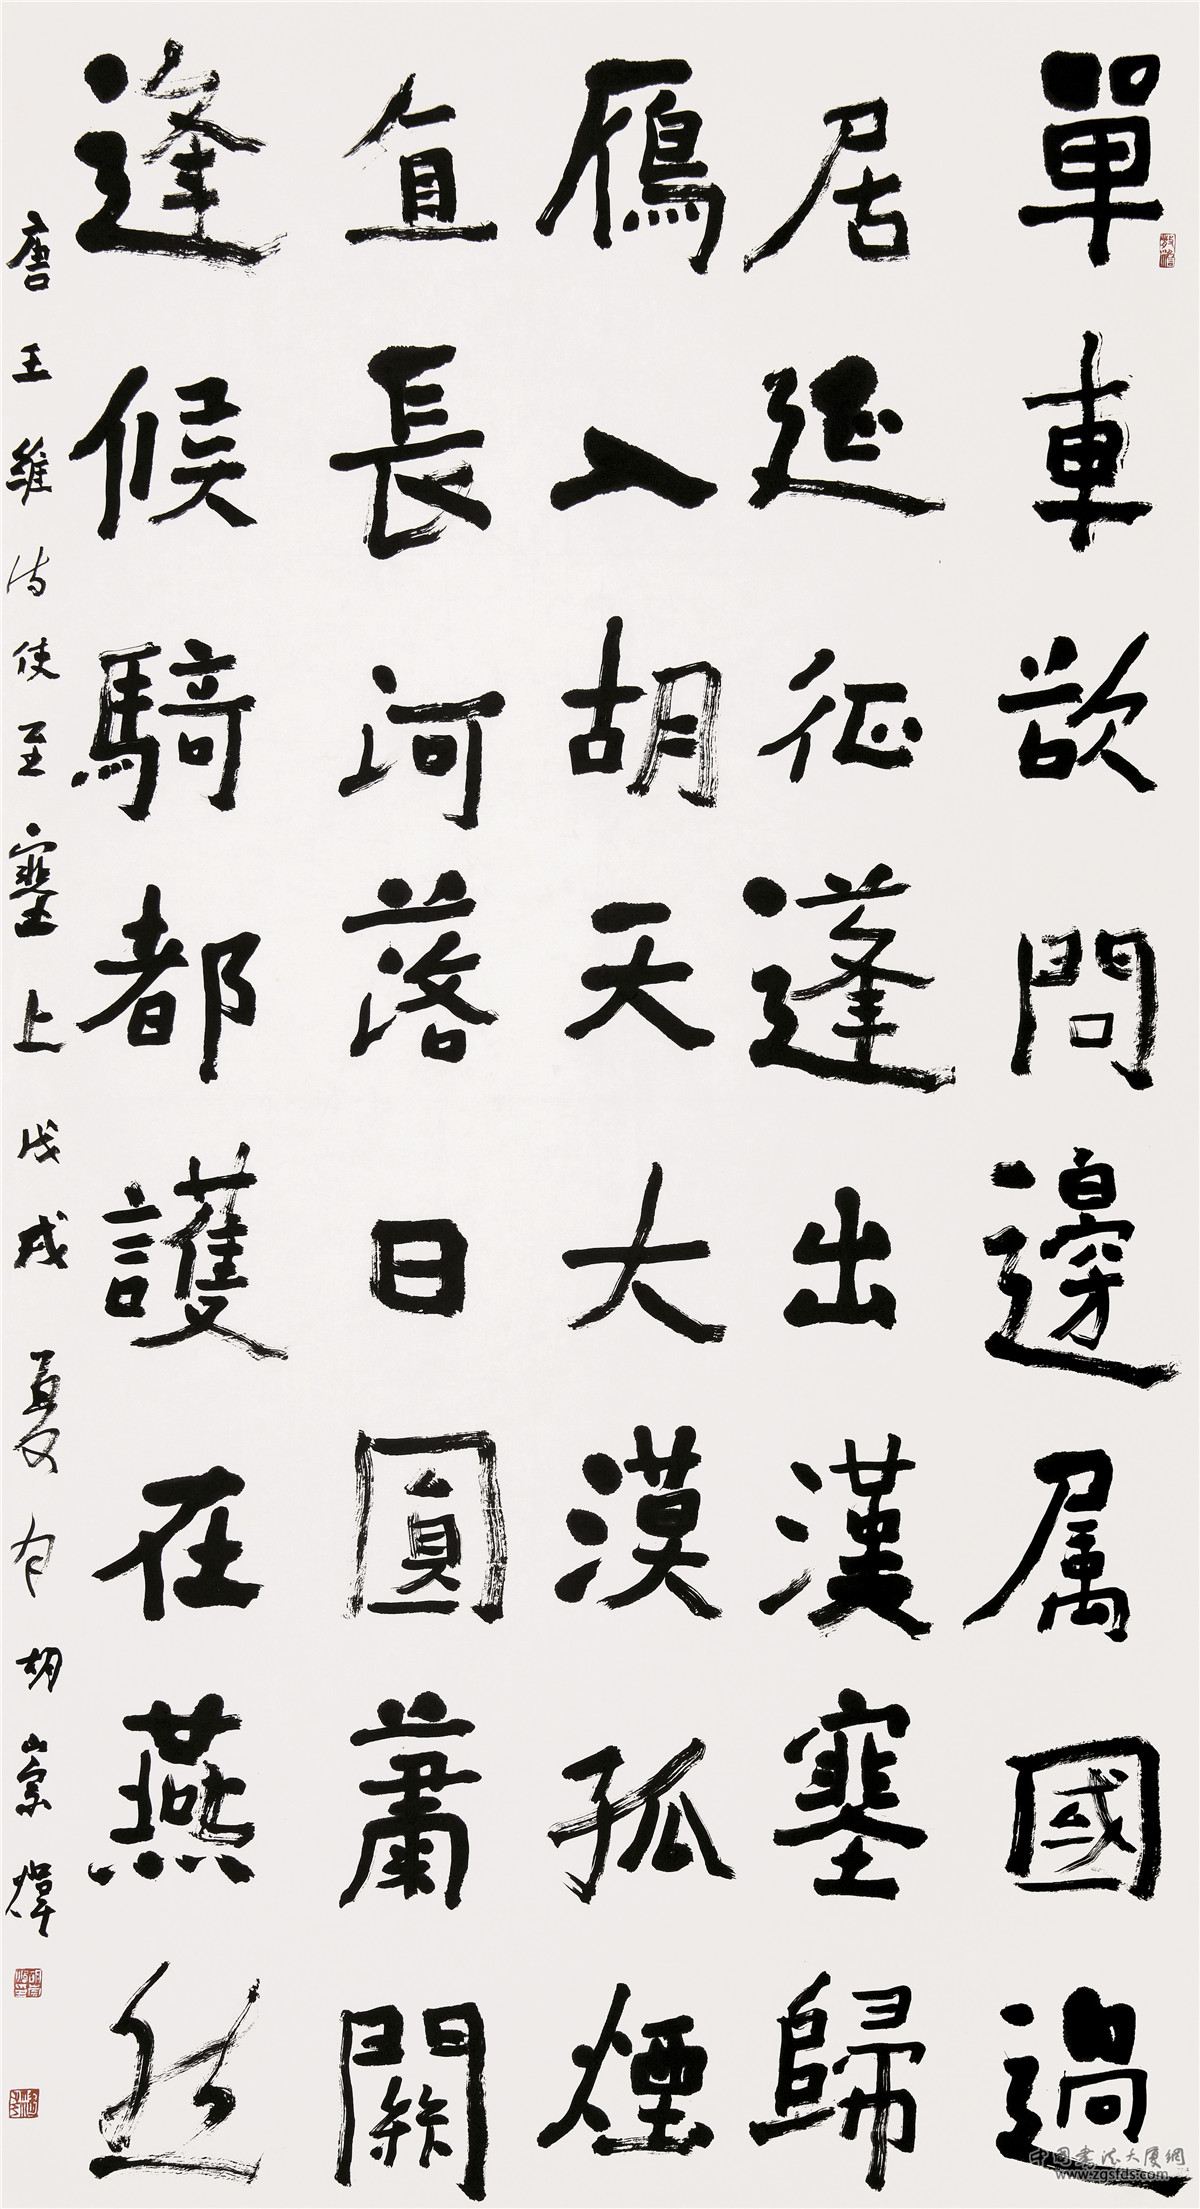 單車欲問邊属國過
居延征蓬出漢塞歸
鴈入胡天大漠孤煙
直長河落日圓蕭關
逢候騎都護在燕然
唐王維诗使至塞上戊戌夏月胡崇煒
中国書法大厦網
www.zgsfds.com